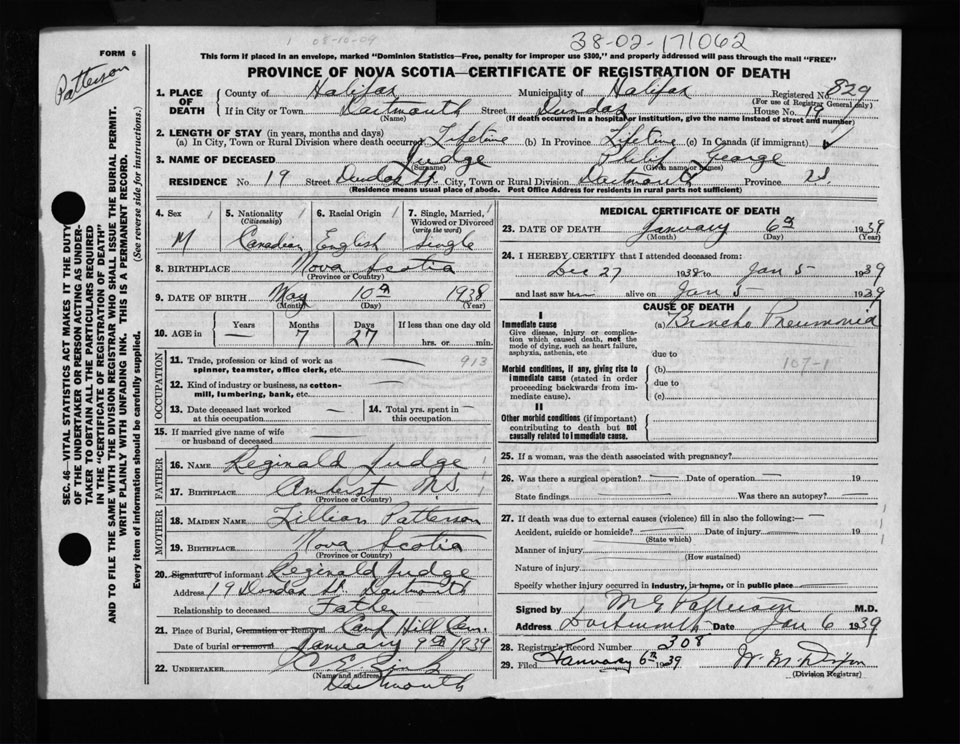 08-10-09
38-02-171062
FORM 6
Patterson
This form if placed in an envelope, marked "Dominion Statistics—Free, penalty for improper use $300," and properly addressed will pass through the mail "FREE"
PROVINCE OF NOVA SCOTIA—CERTIFICATE OF REGISTRATION OF DEATH
1. PLACE OF DEATH County of Halifax Municipality of Halifax Registered No. 829
(For use of Registrar General only)
If in City or Town Dartmouth Street Dundas House No. 19
(Name) (If death occurred in a hospital or institution, give the name instead of street and number)
2. LENGTH OF STAY (in years, months and days)
(a) In City, Town or Rural Division where death occurred Lifetime (b) In Province Lifetime (c) In Canada (if immigrant)
3. NAME OF DECEASED Judge Philip George
(Surname) (Given name or names)
RESIDENCE No. 19 Street Dundas St. City, Town or Rural Division Dartmouth Province N.S.
(Residence means usual place of abode. Post Office Address for residents in rural parts not sufficient)
SEC. 46—VITAL STATISTICS ACT MAKES IT THE DUTY
OF THE UNDERTAKER OR PERSON ACTING AS UNDER-
TAKER TO OBTAIN ALL THE PARTICULARS REQUIRED
IN THE "CERTIFICATE OF REGISTRATION OF DEATH"
AND TO FILE THE SAME WITH THE DIVISION REGISTRAR WHO SHALL ISSUE THE BURIAL PERMIT.
WRITE PLAINLY WITH UNFADING INK. THIS IS A PERMANENT RECORD.
Every item of information should be carefully supplied. (See reverse side for instructions.)
4. Sex 5. Nationality 6. Racial Origin 7. Single, Married,
(Citizenship) Widowed or Divorced
(write the word)
M Canadian English Single
8. BIRTHPLACE Nova Scotia
(Province or Country)
9. DATE OF BIRTH May 10th 1938
(Month) (Day) (Year)
10. AGE in Years Months Days If less than one day old
— 7 27 hrs. or min.
OCCUPATION
11. Trade, profession or kind of work as — 913
spinner, teamster, office clerk, etc.
12. Kind of industry or business, as cotton- —
mill, lumbering, bank, etc.
13. Date deceased last worked — 14. Total yrs. spent in —
at this occupation this occupation
15. If married give name of wife —
or husband of deceased
FATHER
16. NAME Reginald Judge
17. BIRTHPLACE Amherst N.S.
(Province or Country)
MOTHER
18. MAIDEN NAME Lillian Patterson
19. BIRTHPLACE Nova Scotia
(Province or Country)
20. Signature of informant Reginald Judge
Address 19 Dundas St. Dartmouth
Relationship to deceased Father
21. Place of Burial, Cremation or Removal Camp Hill Cem.
Date of burial or removal January 9th 1939
22. UNDERTAKER
(Name and address)
Dartmouth
MEDICAL CERTIFICATE OF DEATH
23. DATE OF DEATH January 6th 1939
(Month) (Day) (Year)
24. I HEREBY CERTIFY that I attended deceased from:
Dec 27 1938 to Jan 5 1939
and last saw him alive on Jan 5 1939
CAUSE OF DEATH
I
Immediate cause (a) Broncho Pneumonia
Give disease, injury or complica-
tion which caused death, not the
mode of dying, such as heart failure,
asphyxia, asthenia, etc due to
107-1
Morbid conditions, if any, giving rise to (b)
immediate cause (stated in order due to
proceeding backwards from im-
mediate cause). (c)
II
Other morbid conditions (if important)
contributing to death but not
causally related to immediate cause.
25. If a woman, was the death associated with pregnancy?
26. Was there a surgical operation? — Date of operation — 19
State findings — Was there an autopsy? —
27. If death was due to external causes (violence) fill in also the following:— —
Accident, suicide or homicide? Date of injury 19
(State which)
Manner of injury
(How sustained)
Nature of injury
Specify whether injury occurred in industry, in home, or in public place
Signed by M G Patterson M.D.
Address Dartmouth Date Jan 6 1939
28. Registrar's Record Number 308
29. Filed January 6th 1939 W. M. Dixon
(Division Registrar)